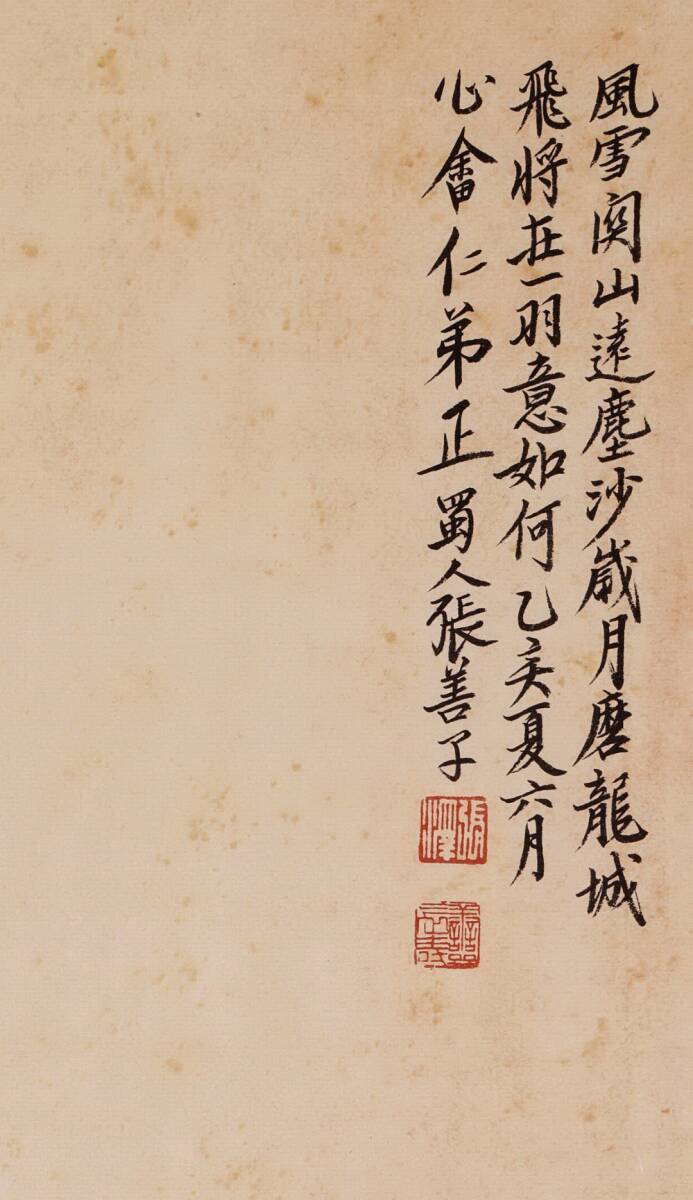 風雪関山遠塵沙嵗月磨龍城
飛將在一羽意如何乙亥夏六月
心畬仁弟正蜀人張善子
張澤